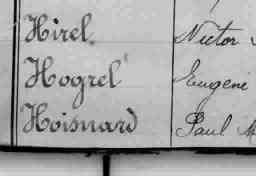 Hirel Victor
Hogrel Eugène
Hoisnard Paul M